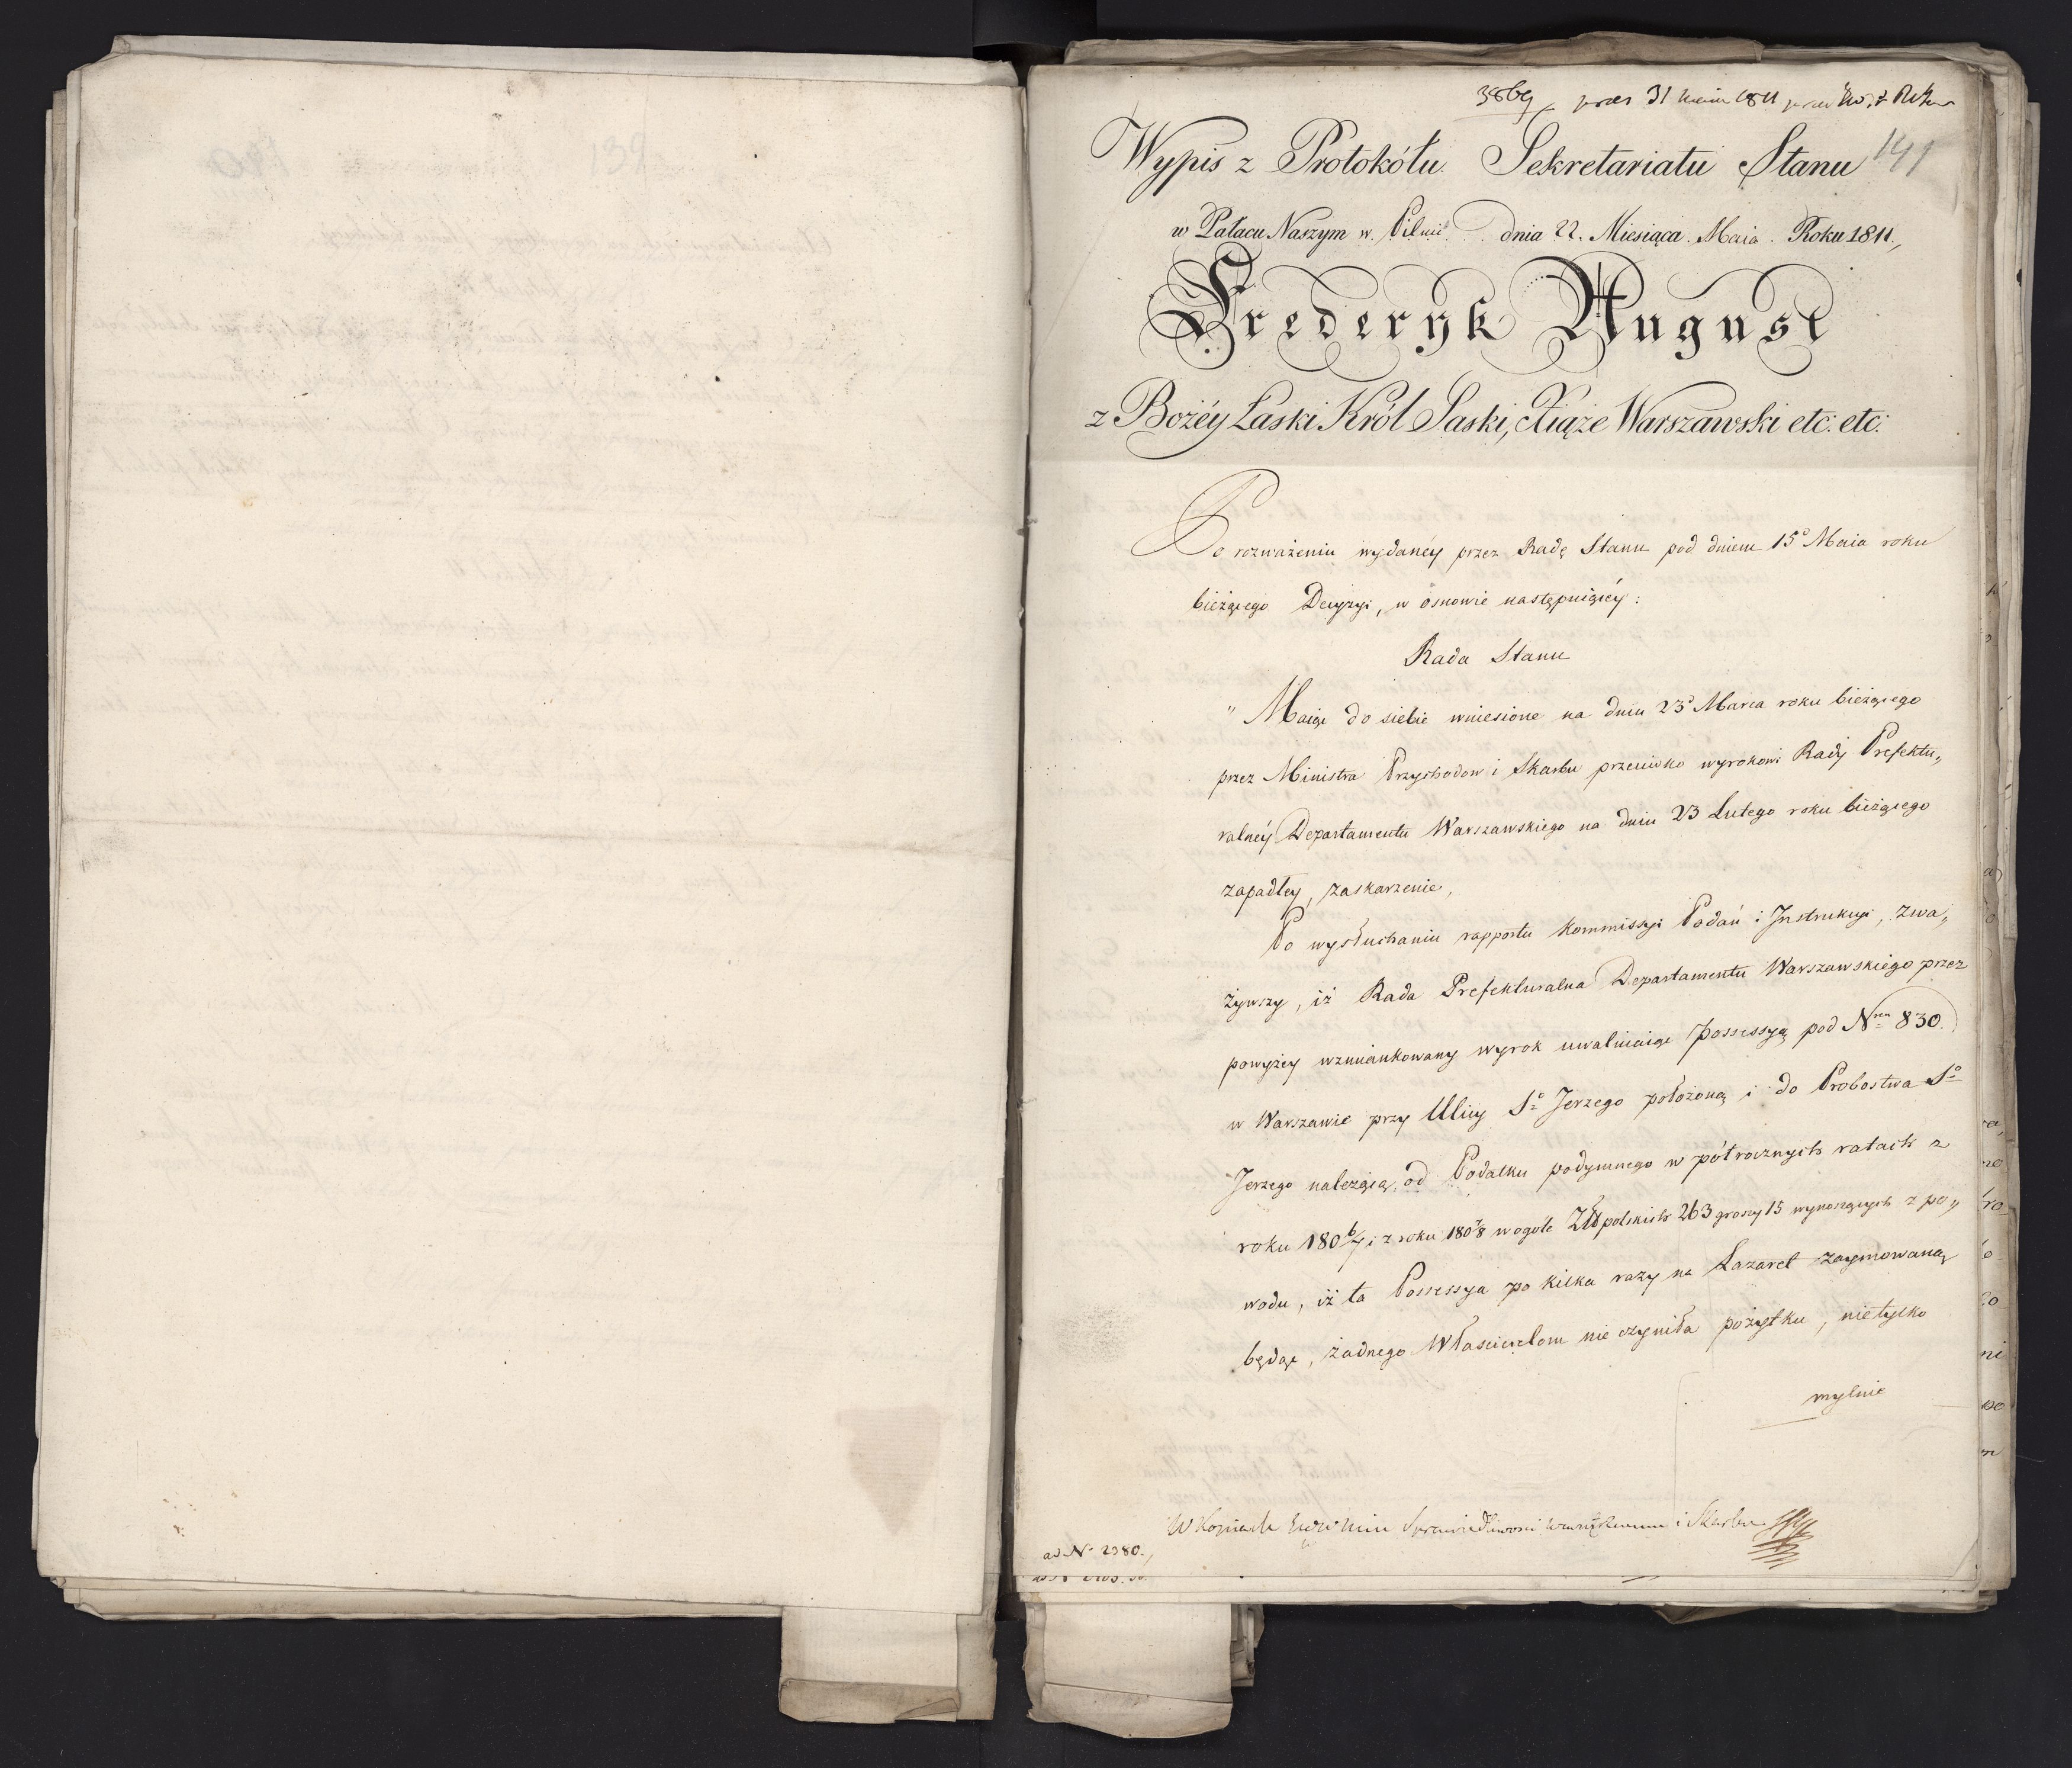 3869 pres 31 Maia 1811
Wypis z Protokółu Sekretariatu Stanu 141
w Pałacu Naszym w. Pilnic dnia 22. Miesiąca. Maia. Roku 1811.,
Frederyk August
z Bożéy Łaski Król Saski, Xiąże Warszawski etc: etc:
Po rozważeniu wydanéy przez Radę Stanu pod dniem 15º Maia roku
bieżącego Decyzyi, w osnowie następuiącéy:
Rada Stanu
" Maiąc do siebie wniesione na dniu 23º Marca roku bieżącego
przez Ministra Przychodow i Skarbu przeciwko wyrokowi Rady Prefektu„
ralnéy Departamentu Warszawskiego na dniu 23 Lutego roku bieżącego
zapadłey, zaskarzenie,
Po wysłuchaniu rapportu Kommissyi Podań i Jnstrukcyi, zwa„
żywszy, iż Rada Prefekturalna Departamentu Warszawskiego przez
powyżey wzmiankowany wyrok uwalniaiąc possessyą pod Nrem 830.
w Warszawie przy Ulicy Sº Jerzego położoną i do Probostwa Sº
Jerzego należącą, od Podatku podymnego w półrocznych ratach z
roku 1806/7 i z roku 1807/8 w ogóle Złł polskich 263 groszy 15 wynoszących z po„
wodu, iż ta Possessya po kilka razy na Lazaret zaymowaną
będąc, żadnego Właścicielom nie czyniła pożytku, nietylko
mylnie
W Kopiach Sprawiedliwosci i Skarbu
ad Nº 2380.,